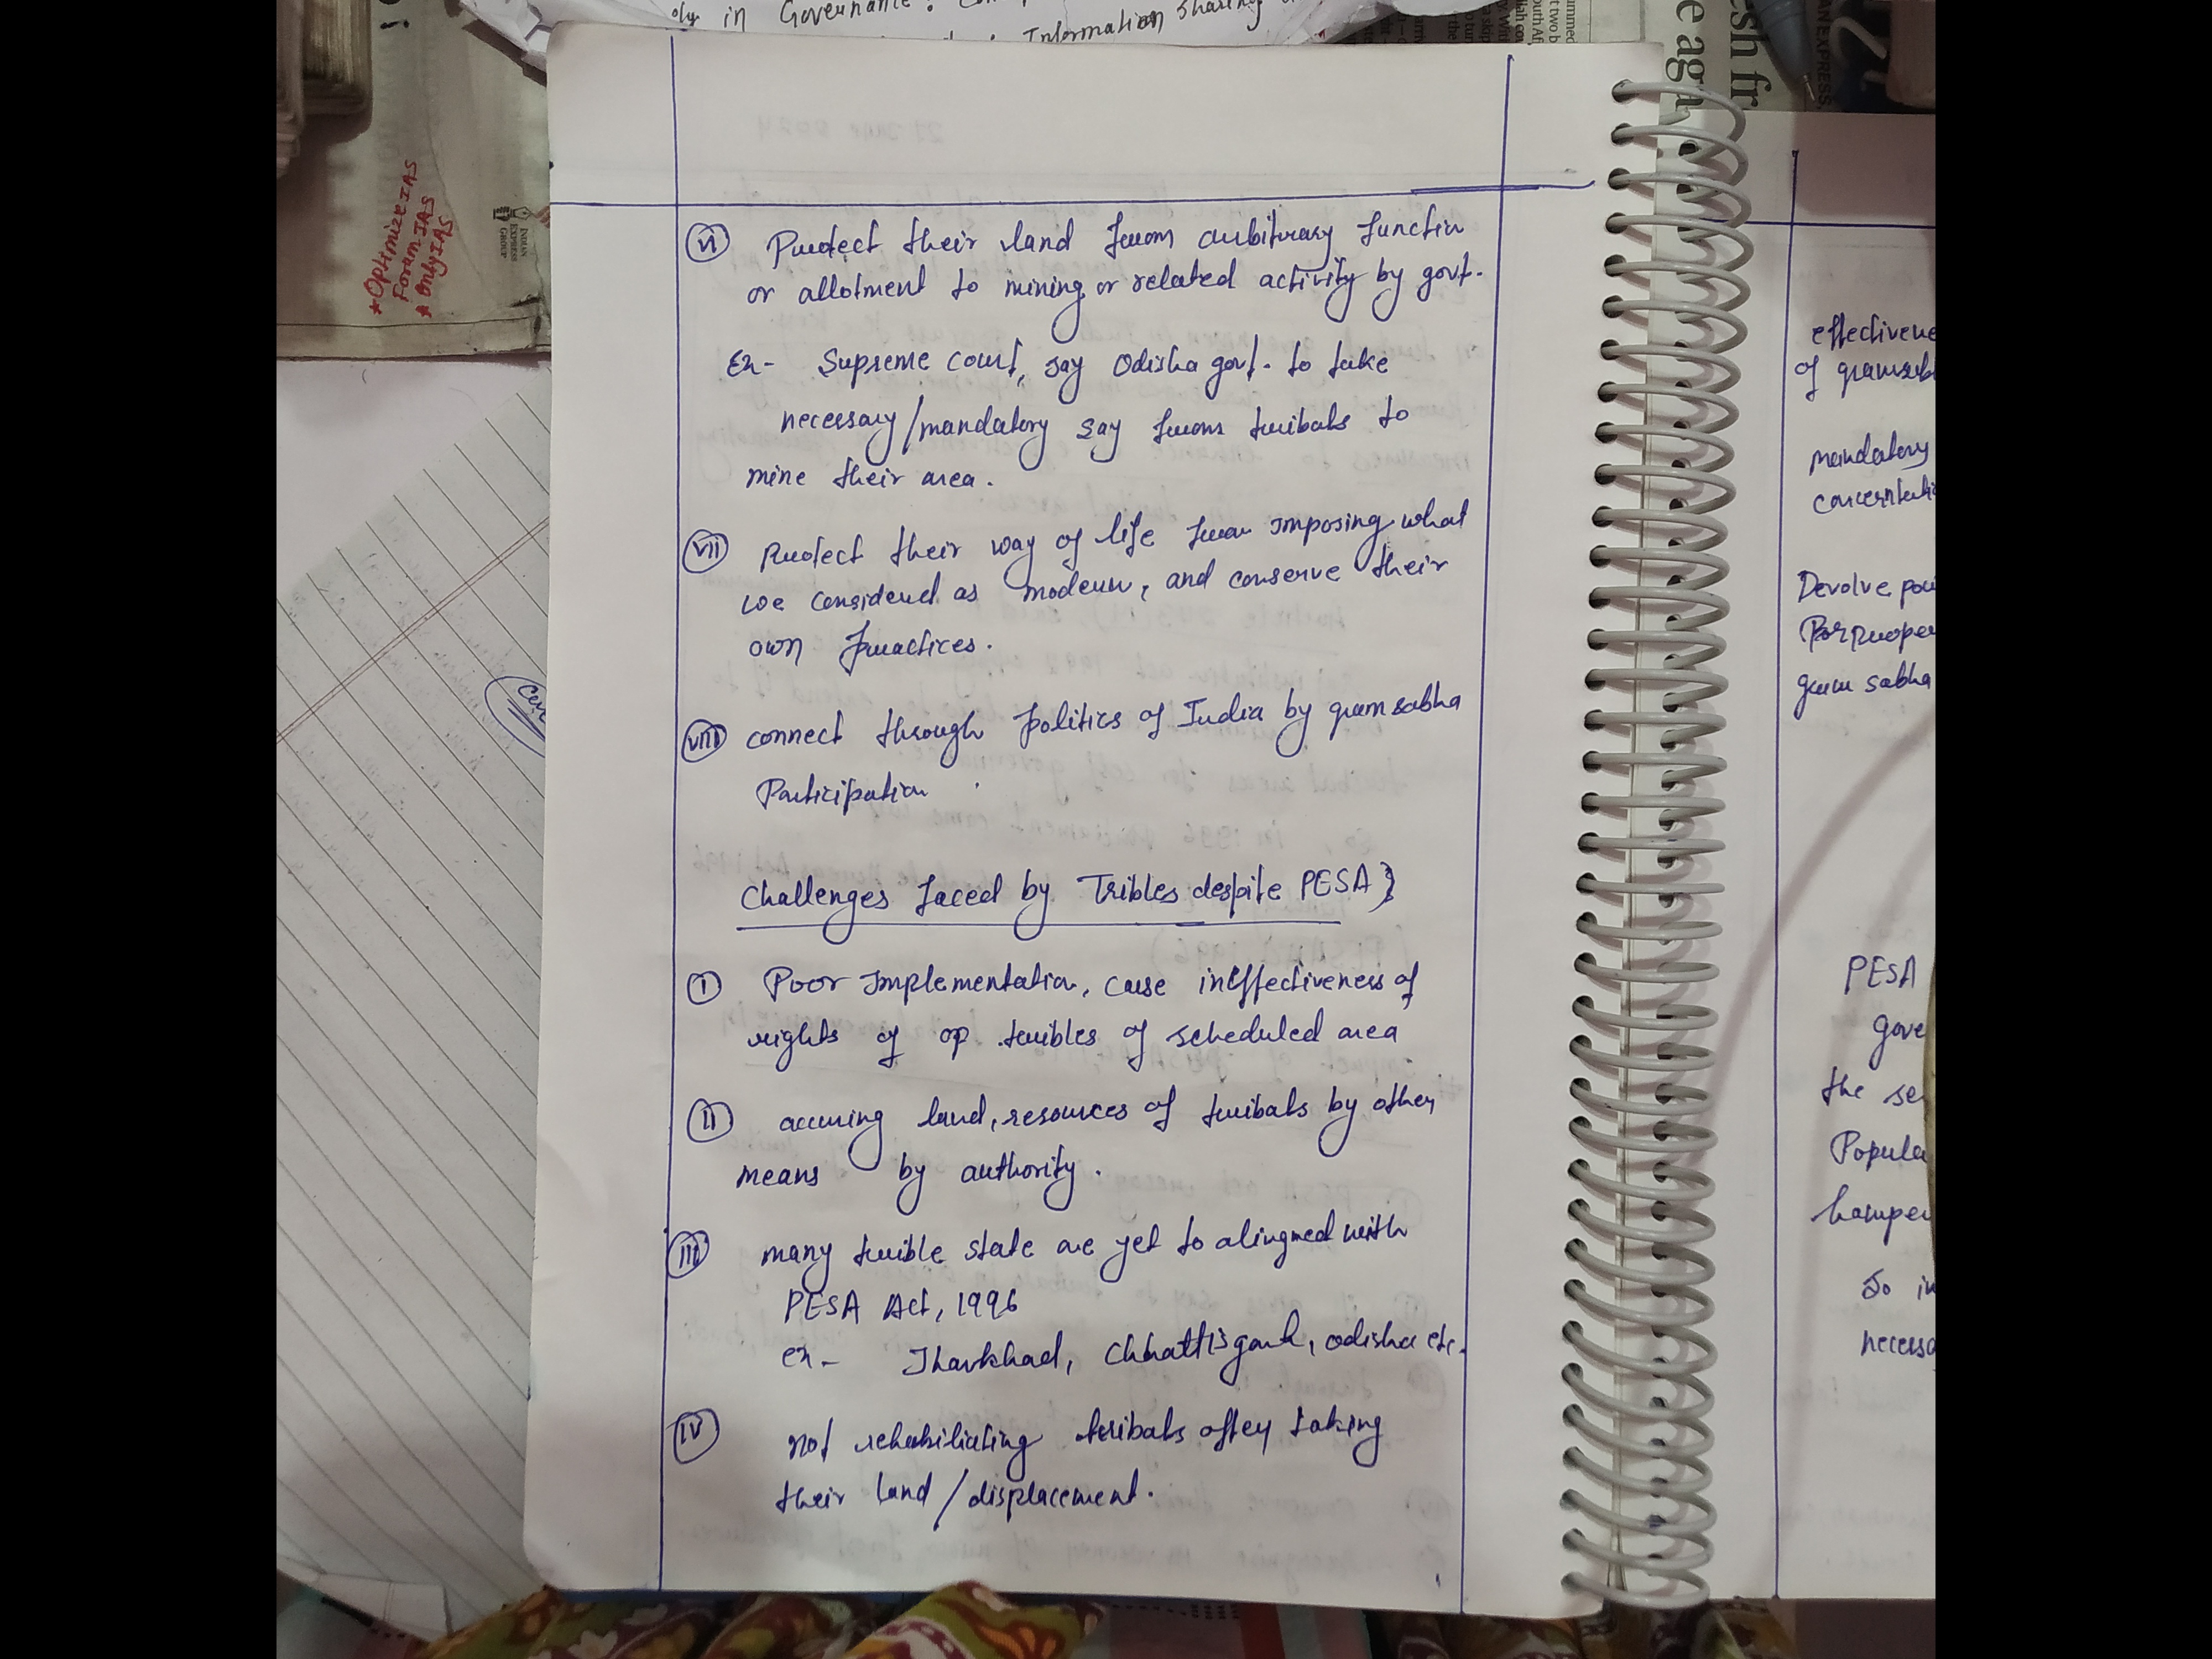 in Governance.
Information sharing
*OptimizeIAS
ForumIAS
* OnlyIAS
INDIAN
EXPRESS
GROUP
esh fr
e aga
AN EXPRESS,
(vi) Protect their land from arbitrary function
or allotment to mining or related activity by govt.
Ex- Supreme court, say Odisha govt. to take
necessary/mandatory say from tribals to
mine their area.
(vii) Protect their way of life from imposing what
we considered as modern, and conserve their
own practices.
(viii) connect through politics of India by gram sabha
Participation
Challenges faced by Tribles despite PESA}
(i) Poor Implementation, cause ineffectiveness of
rights of op tribles of scheduled area
(ii) accuring land, resources of tribals by other
means by authority.
(iii) many trible state are yet to alingned with
PESA Act, 1996
ex- Jharkhad, Chhattisgarh, odisha etc.
(iv) not rehabiliating tribals after taking
their land / displacement.
effectivene
of gramsab
mandatory
Devolve pow
proper
gram sabha
PESA
gove
the se
Popula
hamper
So in
necessa